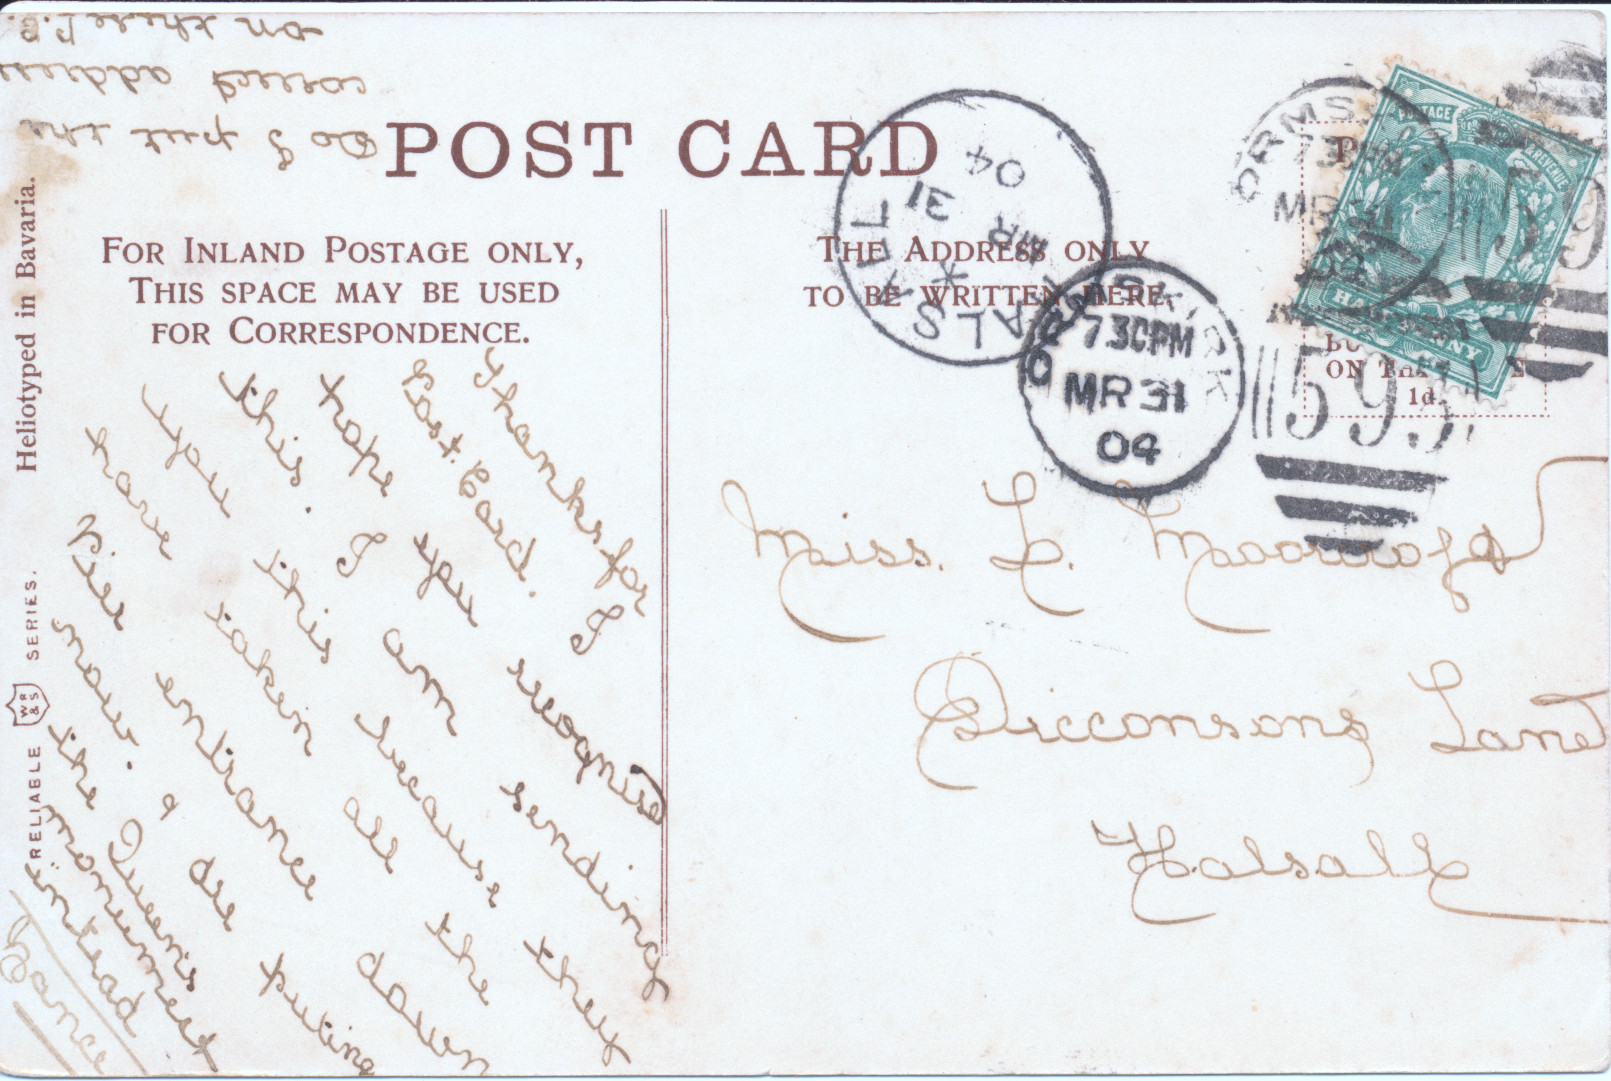 POST CARD
FOR INLAND POSTAGE ONLY,
THIS SPACE MAY BE USED
FOR CORRESPONDENCE.
THE ADDRESS ONLY
TO BE WRITTEN HERE.
Heliotyped in Bavaria.
RELIABLE WR&S SERIES.
Do I put the
correct address
on these P.C.
Thanks for
Post. Card. I
hope you recognise
this. I am sending
you this because they
have taken all the
Pier entrance down
now. & are puting
the Queen's
monument
intead
Miss. L. Moorcroft
Dicconsons Lane
Halsall
HALSALL
MR 31
04
ORMSKIRK
7.30PM
MR 31
04
593
ORMS
MR 31
04
59
POSTAGE
REVENUE
ON THE
1d.